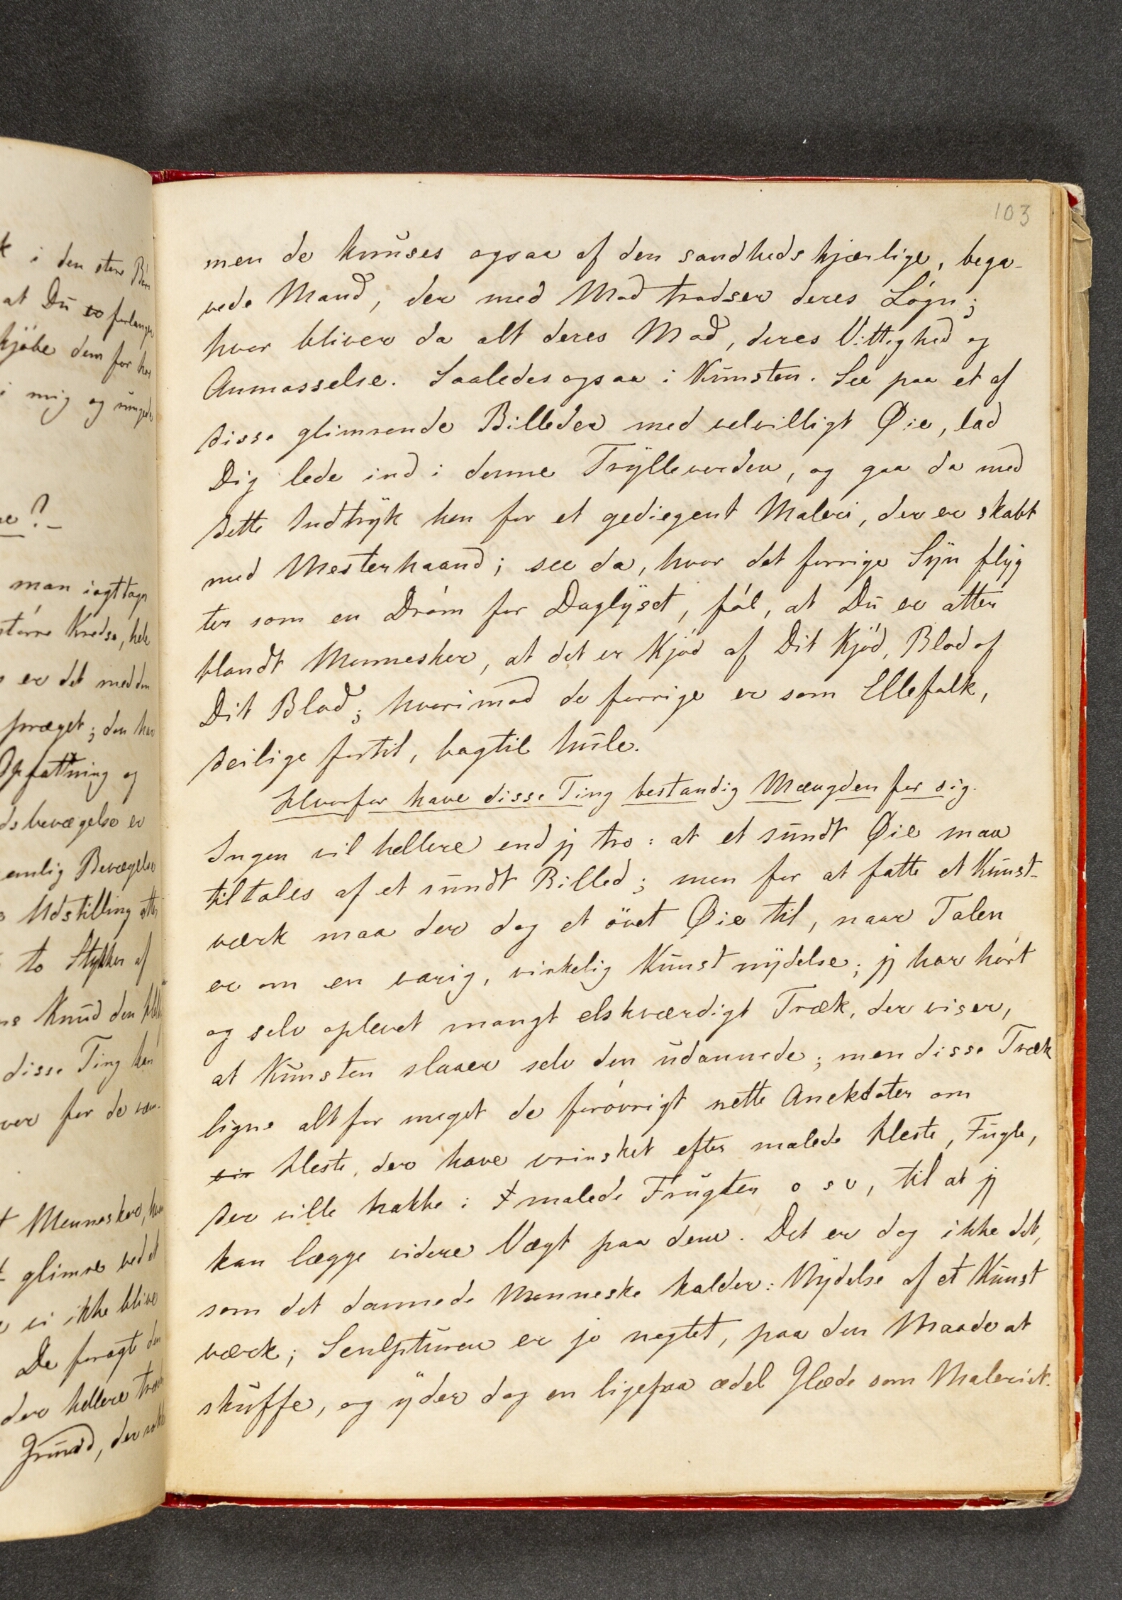 103
men de knuses ogsaa af den sandhedskjærlige, bega-
vede Mand, der med Mod trodser deres Løgn;
hvor bliver da alt deres Mod, deres Vittighed og
Anmasselse. Saaledes ogsaa i Kunsten. See paa et af
disse glimrende Billeder med velvilligt Øie, lad
Dig lede ind i denne Trylleverden, og gaa da med
dette Indtryk hen for et gediegent Maleri, der er skabt
med Mesterhaand; see da, hvor det forrige Syn flyg
ter som en Drøm for Daglyset, føl, at Du er atter
blandt Mennesker, at det er Kjød af Dit Kjød, Blod af
Dit Blod; hvorimod de forrige er som Ellefolk,
deilige fortil, bagtil hule.
Hvorfor have disse Ting bestandig Mængden for sig.
Ingen vil hellere end jeg tro: at et sundt Øie maa
tiltales af et sundt Billed; men for at fatte et Kunst-
værk maa der dog et øvet Øie til, naar Talen
er om en varig, virkelig Kunstnydelse; jeg har hørt
og selv oplevet mangt elskværdigt Træk, der viser,
at Kunsten slaaer selv den udannede; men disse Træk
ligne altfor meget de forøvrigt nette Anekdoter om
Heste, der have vrinsket efter malede Heste, Fugle,
der ville hakke i malede Frugter o s v, til at jeg
kan lægge videre Vægt paa dem. Det er dog ikke det,
som det dannede Menneske kalder: Nydelse af et Kunst
værk; Sculpturen er jo negtet, paa den Maade at
skuffe, og yder dog en ligesaa ædel Glæde som Maleriet.
i den store
at Du er forlanger
kjøbe dem for
mig og
?
man iagttager
større Kreds,
er det med den
præget; den har
Opfattning og
dsbevægelse er
Bevægelse
Udstilling
to Stykker af
Knud den
disse Ting hen
ver for de
Mennesker,
glimre ved et
vi ikke blive
De foragte
der hellere
Grund, der